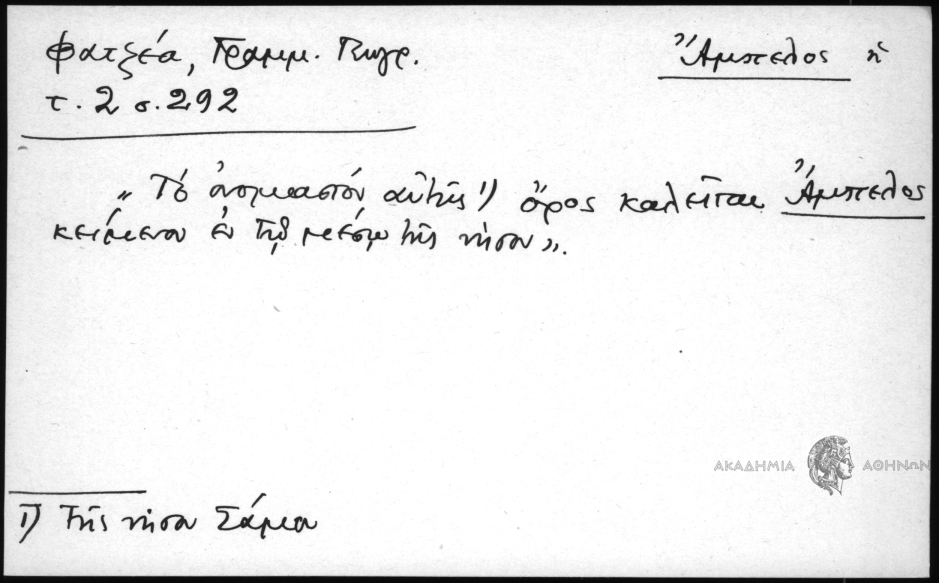 Φατζέα, Γραμμ. Γεωγρ.
τ. 2 σ. 292
Ἄμπελος ἡ
„ Τό ὀνομαστόν αὐτῆς 1) ὄρος καλεῖται Ἄμπελος
κείμενον ἐν τῷ μέσῳ τῆς νήσου".
ΑΚΑΔΗΜΙΑ ΑΘΗΝΩΝ
1) τῆς νήσου Σάμου